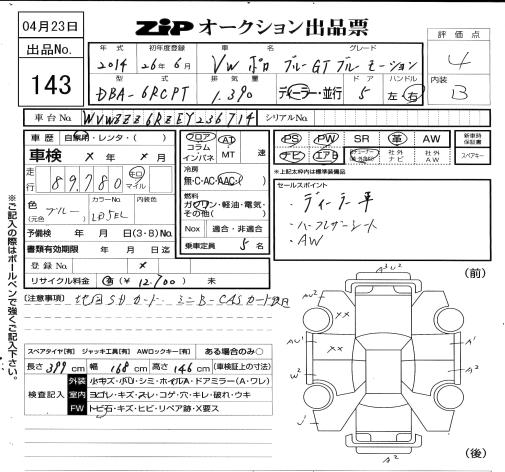 04月23日
ZIP オークション出品票
出品No.
143
評価点
4
内装
B
年式 初年度登録 車名 グレード
2014 26年6月 VW ポロ ブルーGT ブルーモーション
型式 排気量 ドア ハンドル
DBA-6RCPT 1.390 ディーラー・並行 5 左・右
車台No. WVWZZZ6RZEY236714 シリアルNo.
車歴 自家用・レンタ・( )
車検 × 年 × 月
走行 89,780 キロ マイル
色 (元色) ブルー カラーNo. LD5EL 内装色
予備検 年 月 日(3・8)No.
書類有効期限 年 月 日迄
登録No. ×
リサイクル料金 有(¥12,700) 未
フロア コラム インパネ
AT MT 速
冷房
無・C・AC・AAC
燃料
ガソリン・軽油・電気・その他( )
Nox 適合・非適合
乗車定員 5 名
PS PW SR 革 AW
ナビ エアB 社外ナビ 社外AW
新車時保証書
スペアキー
※上記太枠内は標準装備品
セールスポイント
・ディーラー車
・ハーフレザーシート
・AW
※ご記入の際はボールペンで強くご記入下さい。
(注意事項) 地図SDカード、ミニB-CASカード欠品
(前)
A3U2
AU2
××
AU1
××
W2
J
A1
A2
(後)
スペアタイヤ[有] ジャッキ工具[有] AWロックキー[有] ある場合のみ○
長さ 399 cm 幅 168 cm 高さ 146 cm (車検証上の寸法)
検査記入
外装 小キズ・小U・シミ・ホイルA・ドアミラー(A・ワレ)
室内 ヨゴレ・キズ・スレ・コゲ・穴・キレ・破れ・ウキ
FW トビ石・キズ・ヒビ・リペア跡・X要ス